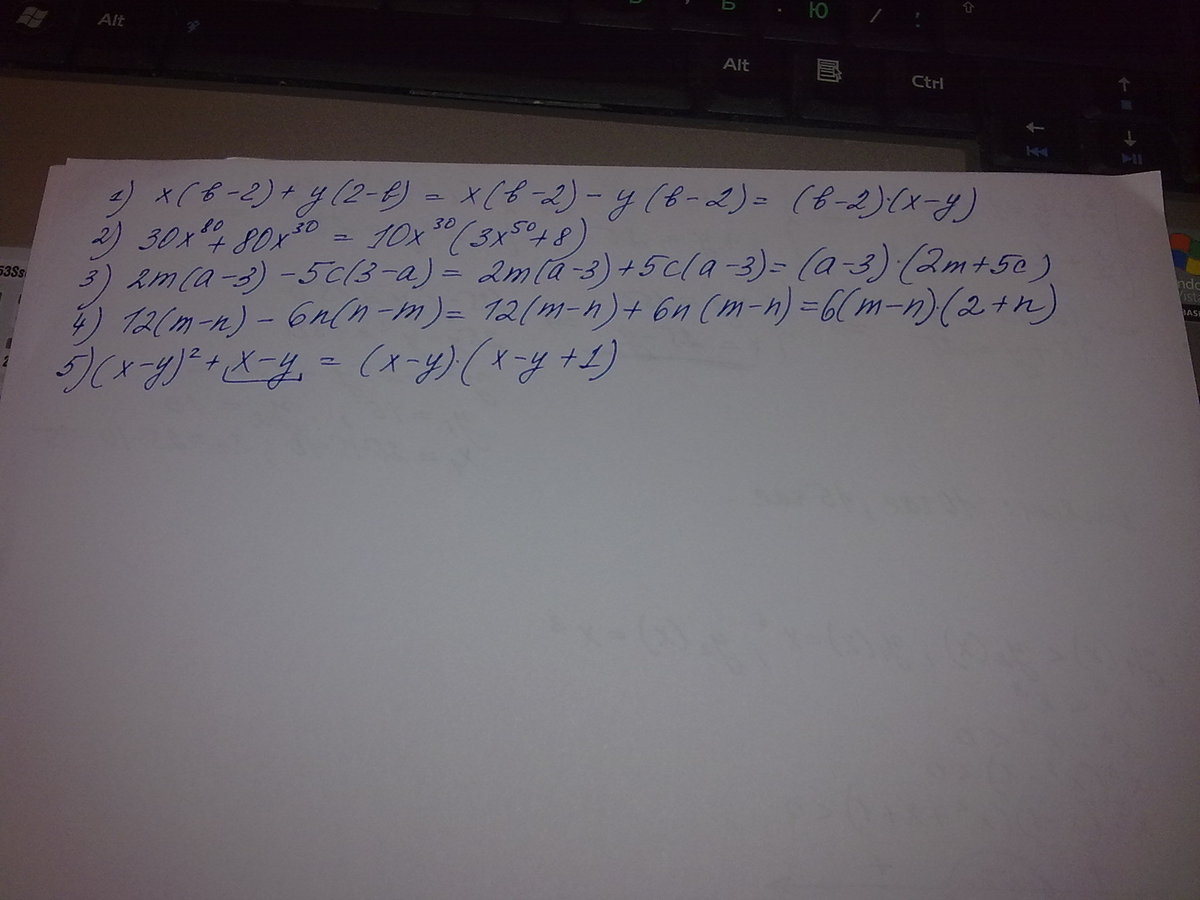 Alt
Ь
Ю
Alt
Ctrl
1) x(в-2)+y(2-в) = x(в-2)-y(в-2)= (в-2)·(x-y)
2) 30x⁸⁰+80x³⁰ = 10x³⁰(3x⁵⁰+8)
3) 2m(a-3)-5c(3-a)= 2m(a-3)+5c(a-3)= (a-3)·(2m+5c)
4) 12(m-n)-6n(n-m)= 12(m-n)+6n(m-n)=6(m-n)·(2+n)
5)(x-y)²+x-y = (x-y)·(x-y+1)